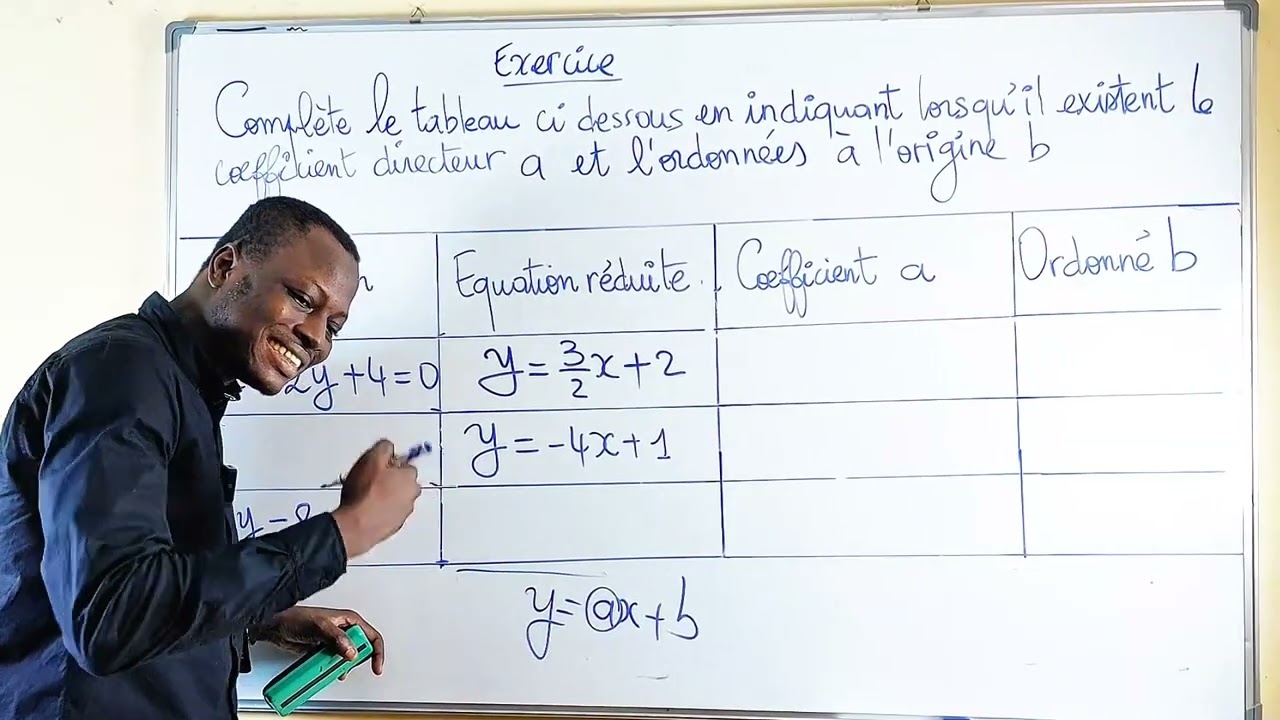 Exercice
Complète le tableau ci dessous en indiquant lorsqu'il existent le
coefficient directeur a et l'ordonnées à l'origine b
n Equation réduite. Coefficient a Ordonné b
2y+4=0 y=3/2x+2
y=-4x+1
y-8
y=ax+b